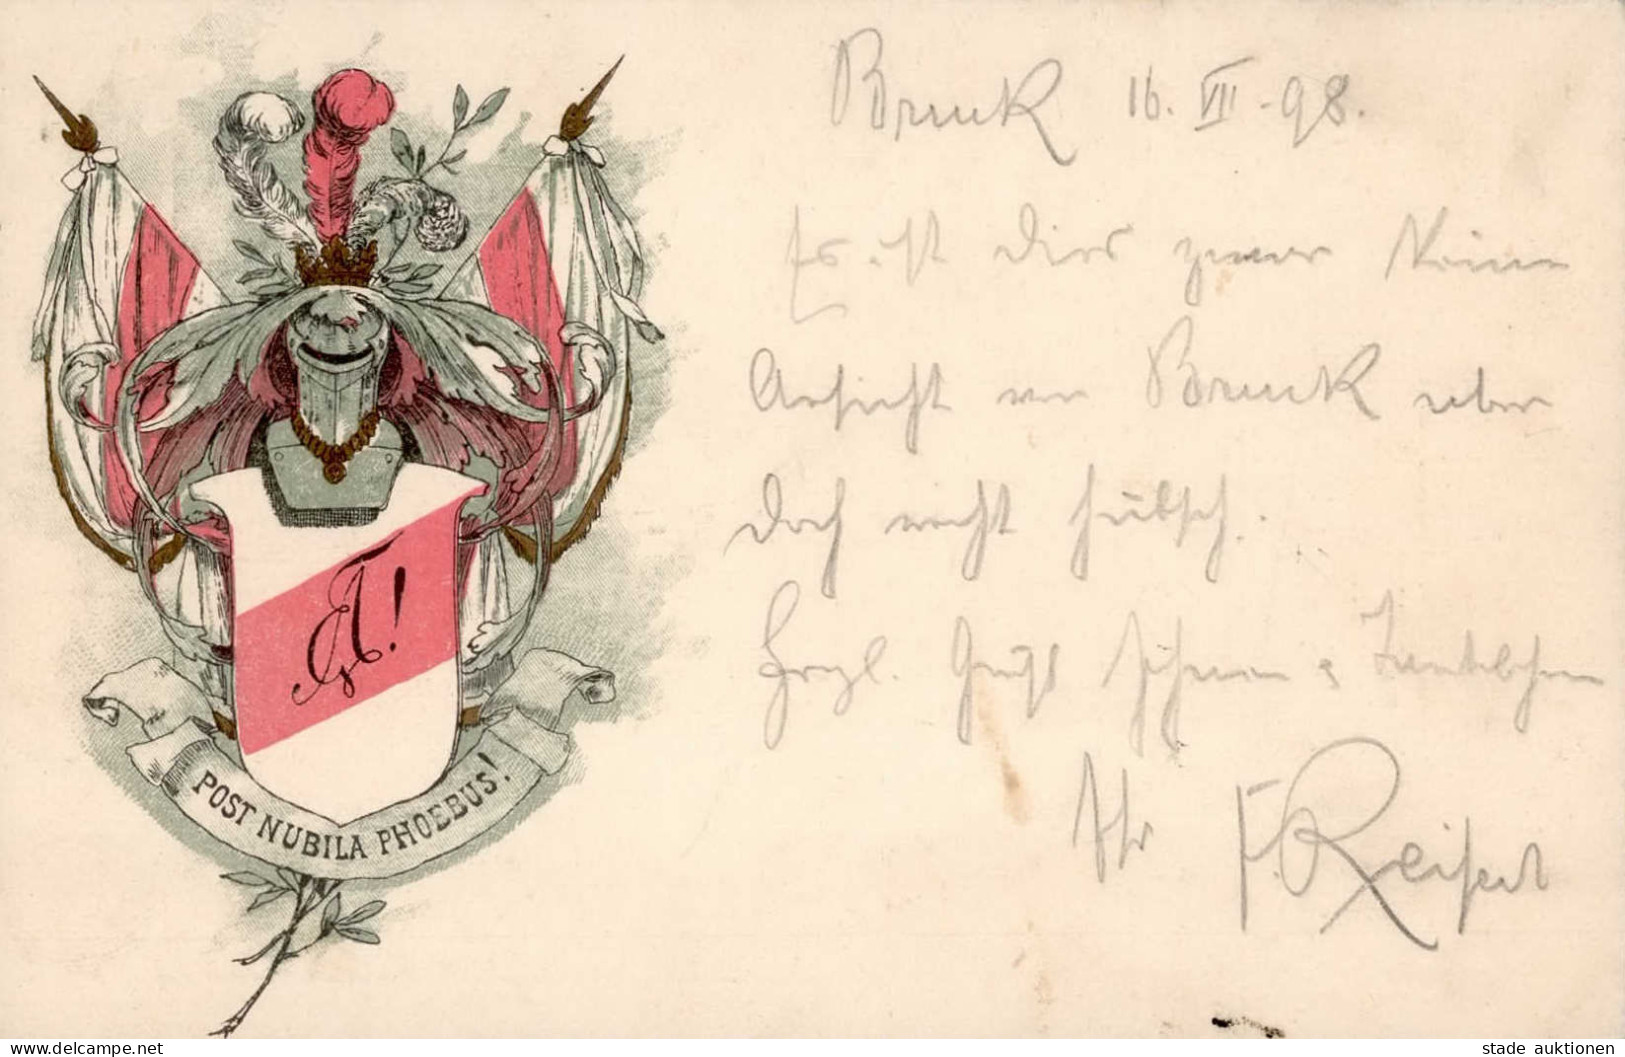 Bruck 16. VIII. 98.
Es ist dies zwar keine
Ansicht von Bruck aber
doch recht hübsch.
Herzl. Gruß
Ihr F. Reisert
POST NUBILA PHOEBUS!
stade auktionen